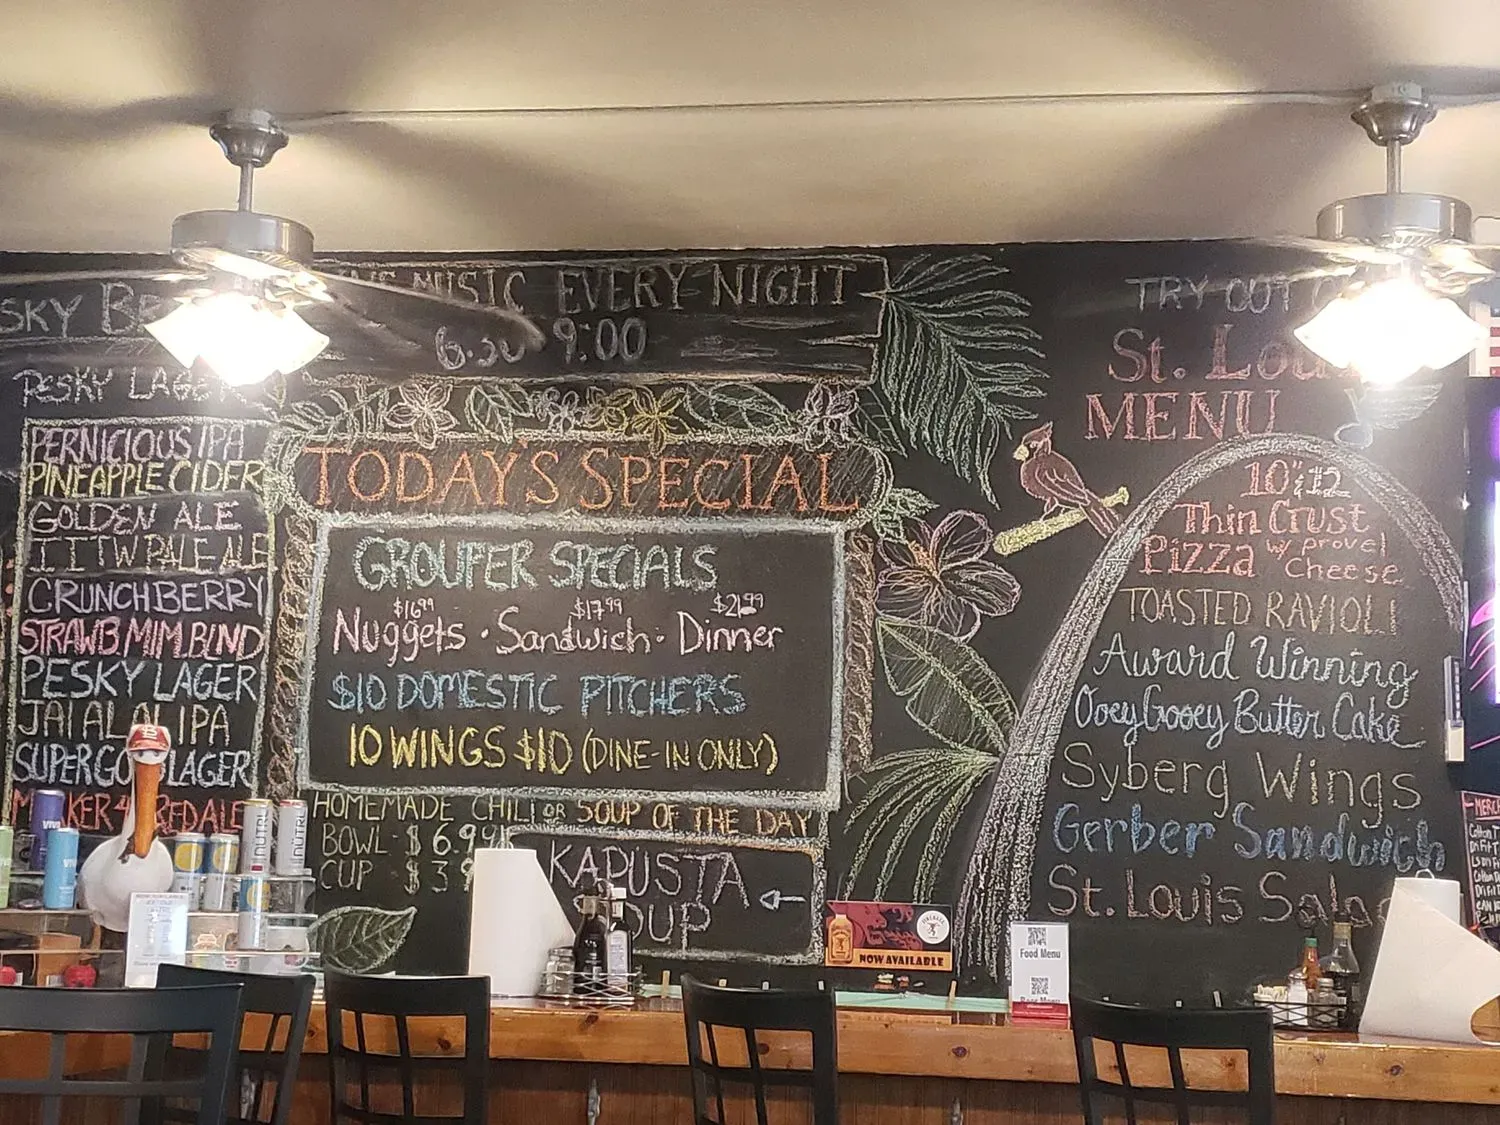 MUSIC EVERY NIGHT
6:30 9:00
SKY
PESKY LAGER
PERNICIOUS IPA
PINEAPPLE CIDER
GOLDEN ALE
IITWPALE ALE
CRUNCHBERRY
STRAWB MIM BLND
PESKY LAGER
JAI ALAI IPA
LAGER
REDALE
TODAY'S SPECIAL
GROUPER SPECIALS
$16.99 $17.99 $21.99
Nuggets · Sandwich · Dinner
$10 DOMESTIC PITCHERS
10 WINGS $10 (DINE-IN ONLY)
HOMEMADE CHILI OR SOUP OF THE DAY
BOWL - $6.99
CUP $3
KAPUSTA
SOUP
TRY OUT
St.
MENU
10" & 12
Thin Crust
Pizza w/ Provel
Cheese
TOASTED RAVIOLI
Award Winning
Ooey Gooey Butter Cake
Syberg Wings
Gerber Sandwich
St. Louis
NÜTRL
NÜTRL
FIREBALL
NOW AVAILABLE
Food Menu
Beer Menu